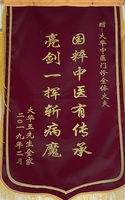 赠:大华中医门诊全体大夫
国粹中医有传承
亮剑一挥斩病魔
大华王先生全家
二〇一九年二月